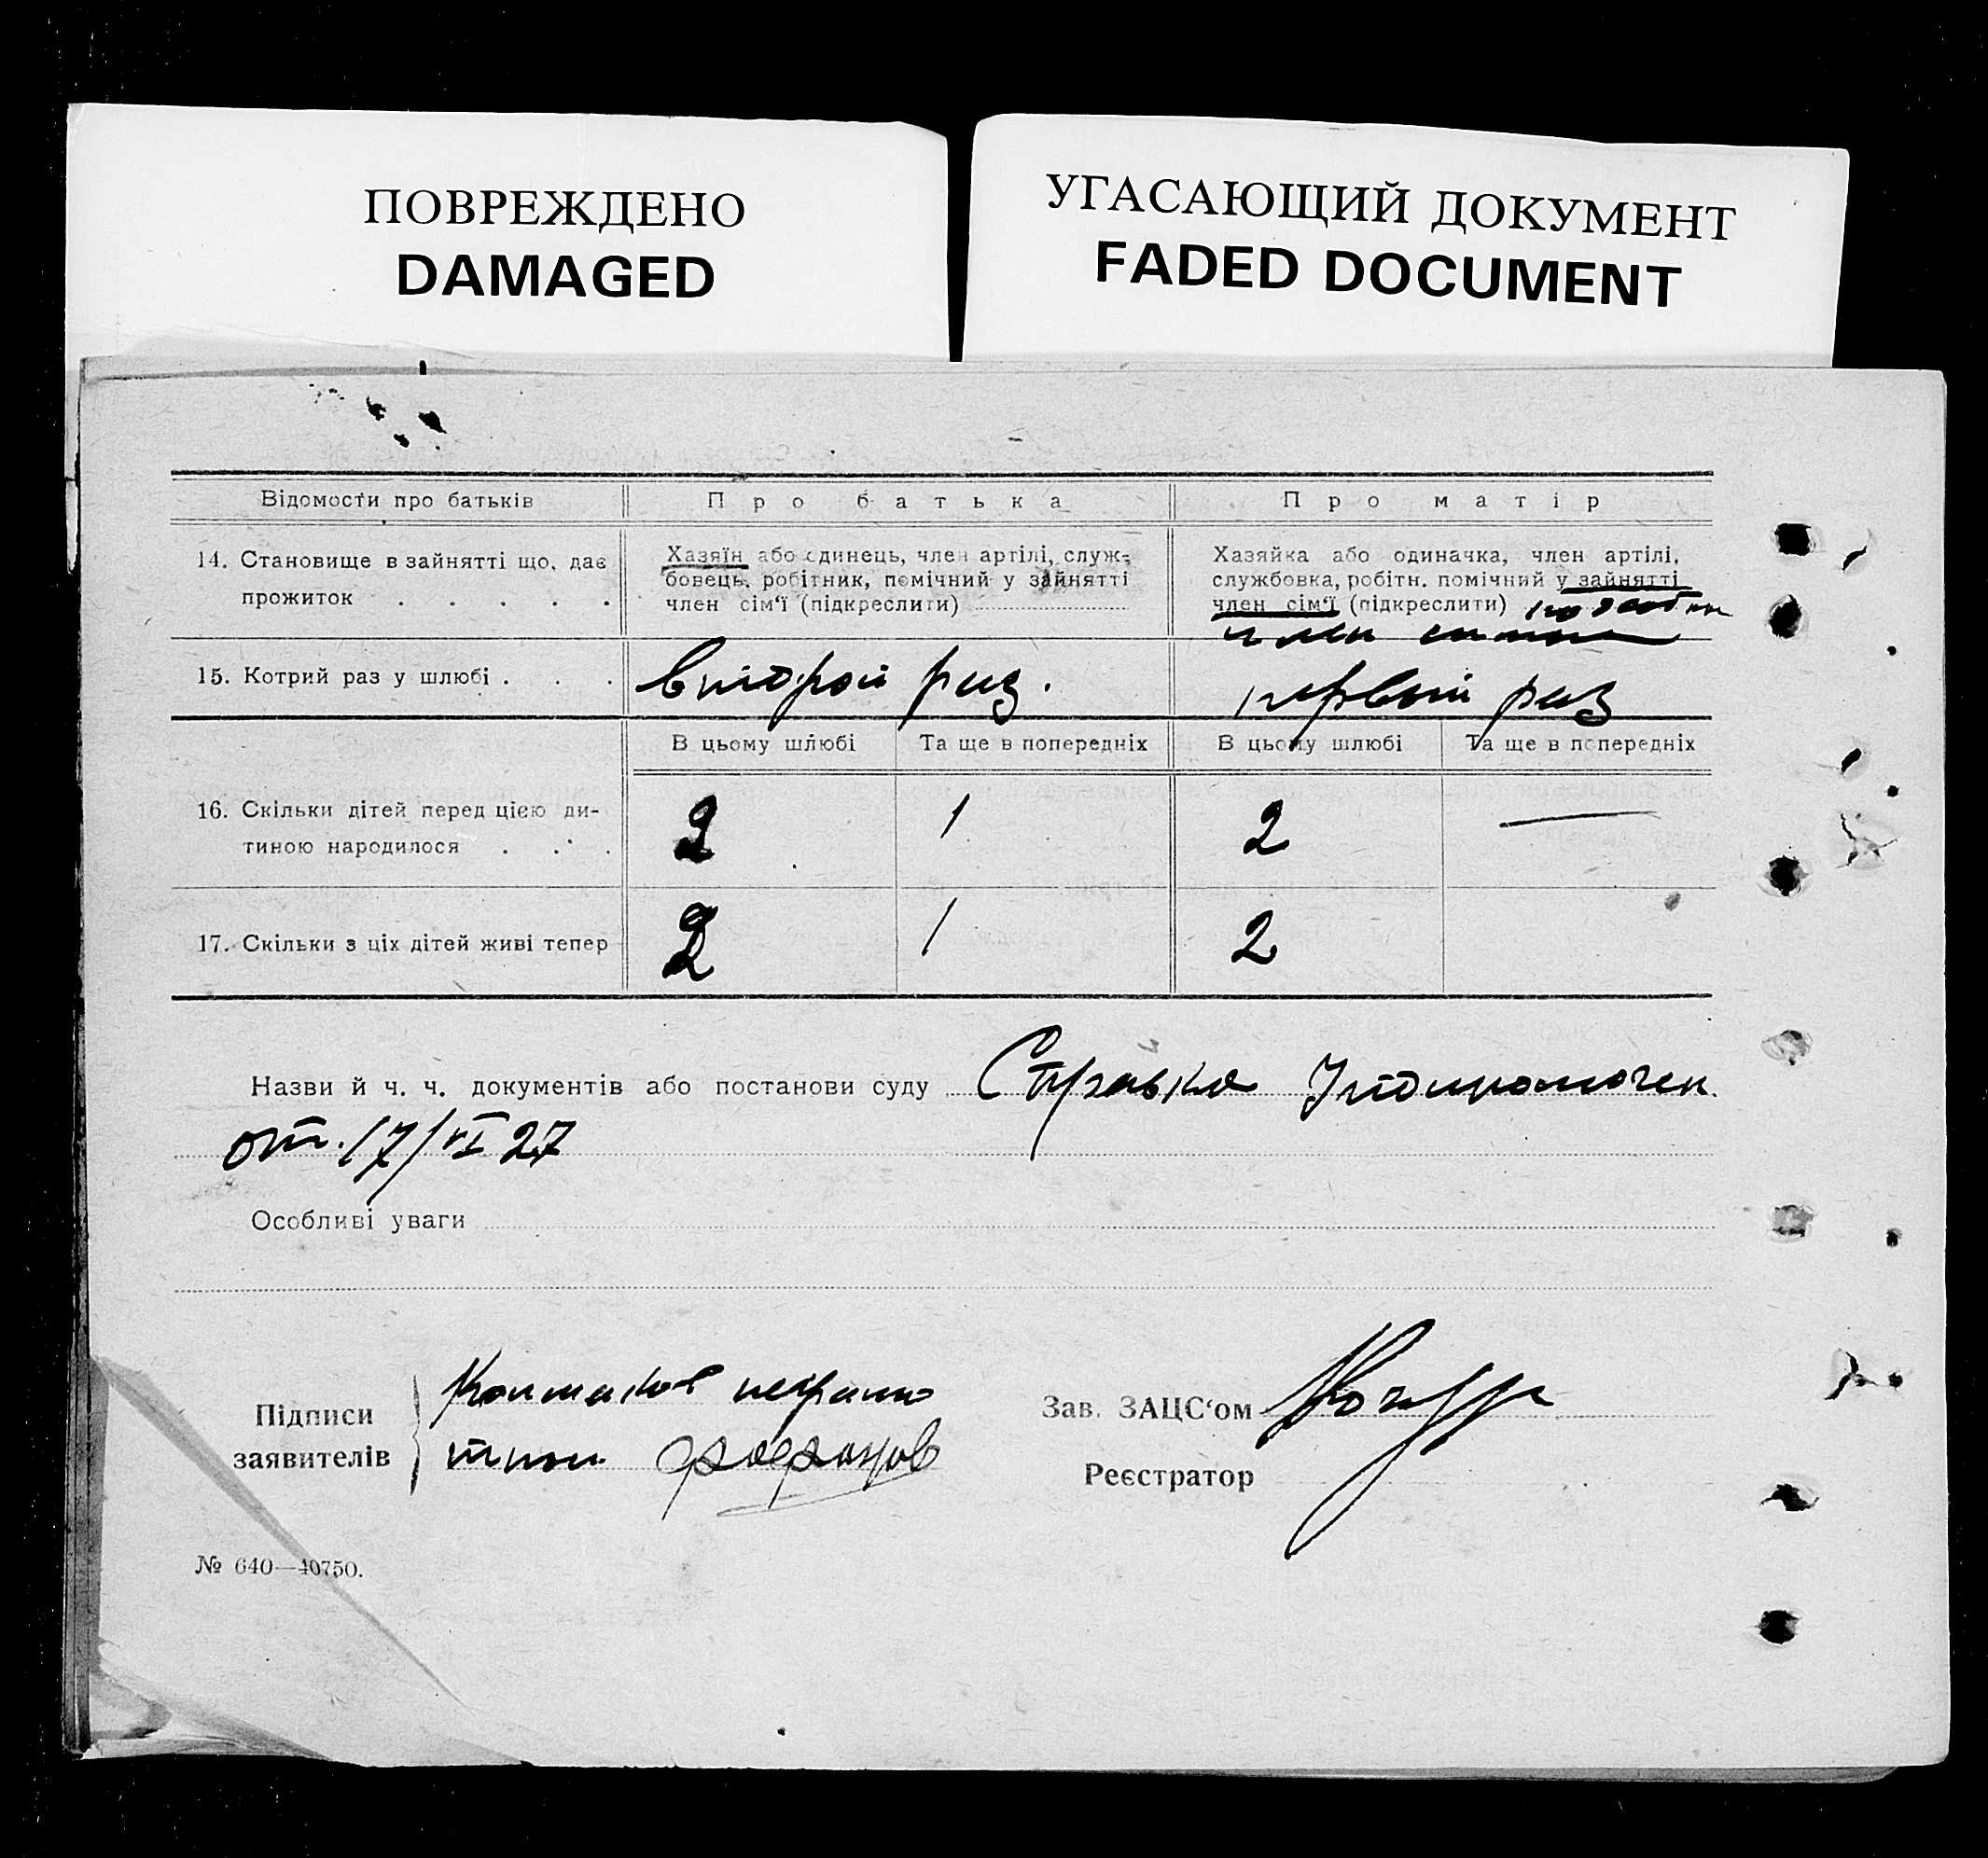 ПОВРЕЖДЕНО
DAMAGED
УГАСАЮЩИЙ ДОКУМЕНТ
FADED DOCUMENT
Відомости про батьків
Про батька
Про матір
14. Становище в зайнятті що, дає
прожиток . . . . .
Хазяїн або одинець, член артілі, служ-
бовець, робітник, помічний у зайнятті
член сім‘ї (підкреслити)
Хазяйка або одиначка, член артілі,
службовка, робітн. помічний у зайнятті
член сім‘ї (підкреслити)
член
15. Котрий раз у шлюбі . . .
второй раз.
первый раз
В цьому шлюбі
Та ще в попередніх
В цьому шлюбі
Та ще в попередніх
16. Скільки дітей перед цією ди-
тиною народилося . . .
2
1
2
—
17. Скільки з ціх дітей живі тепер
2
1
2
Назви й ч. ч. документів або постанови суду Справка
от. 17/VI 27
Особливі уваги
Підписи
заявителів
Зав. ЗАЦС‘ом
Реєстратор
№ 640—40750.